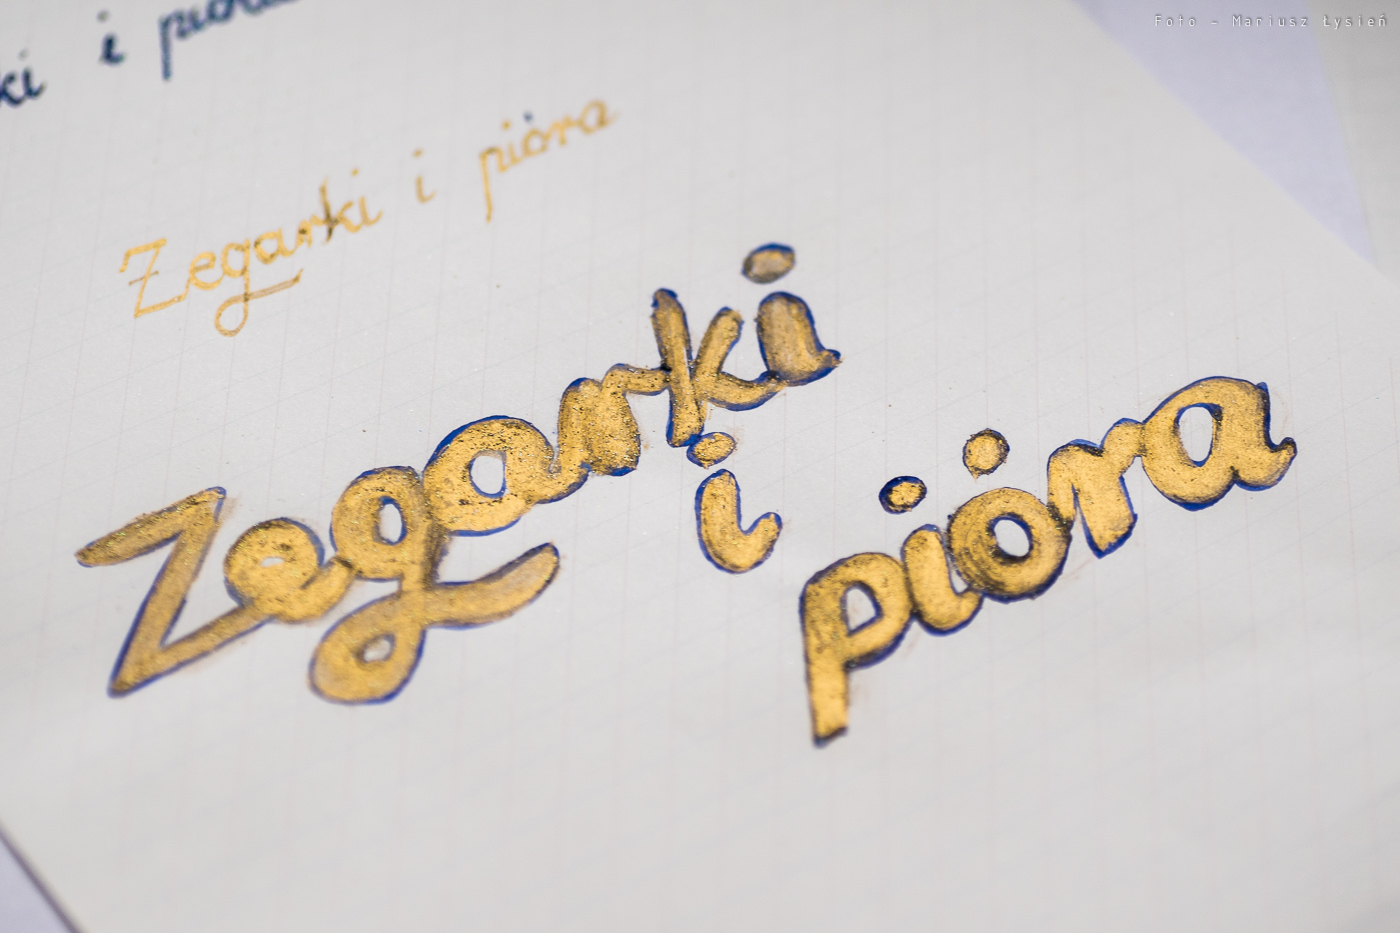 Foto - Mariusz Łysień
ki i pióra
Zegarki i pióra
Zegarki i pióra